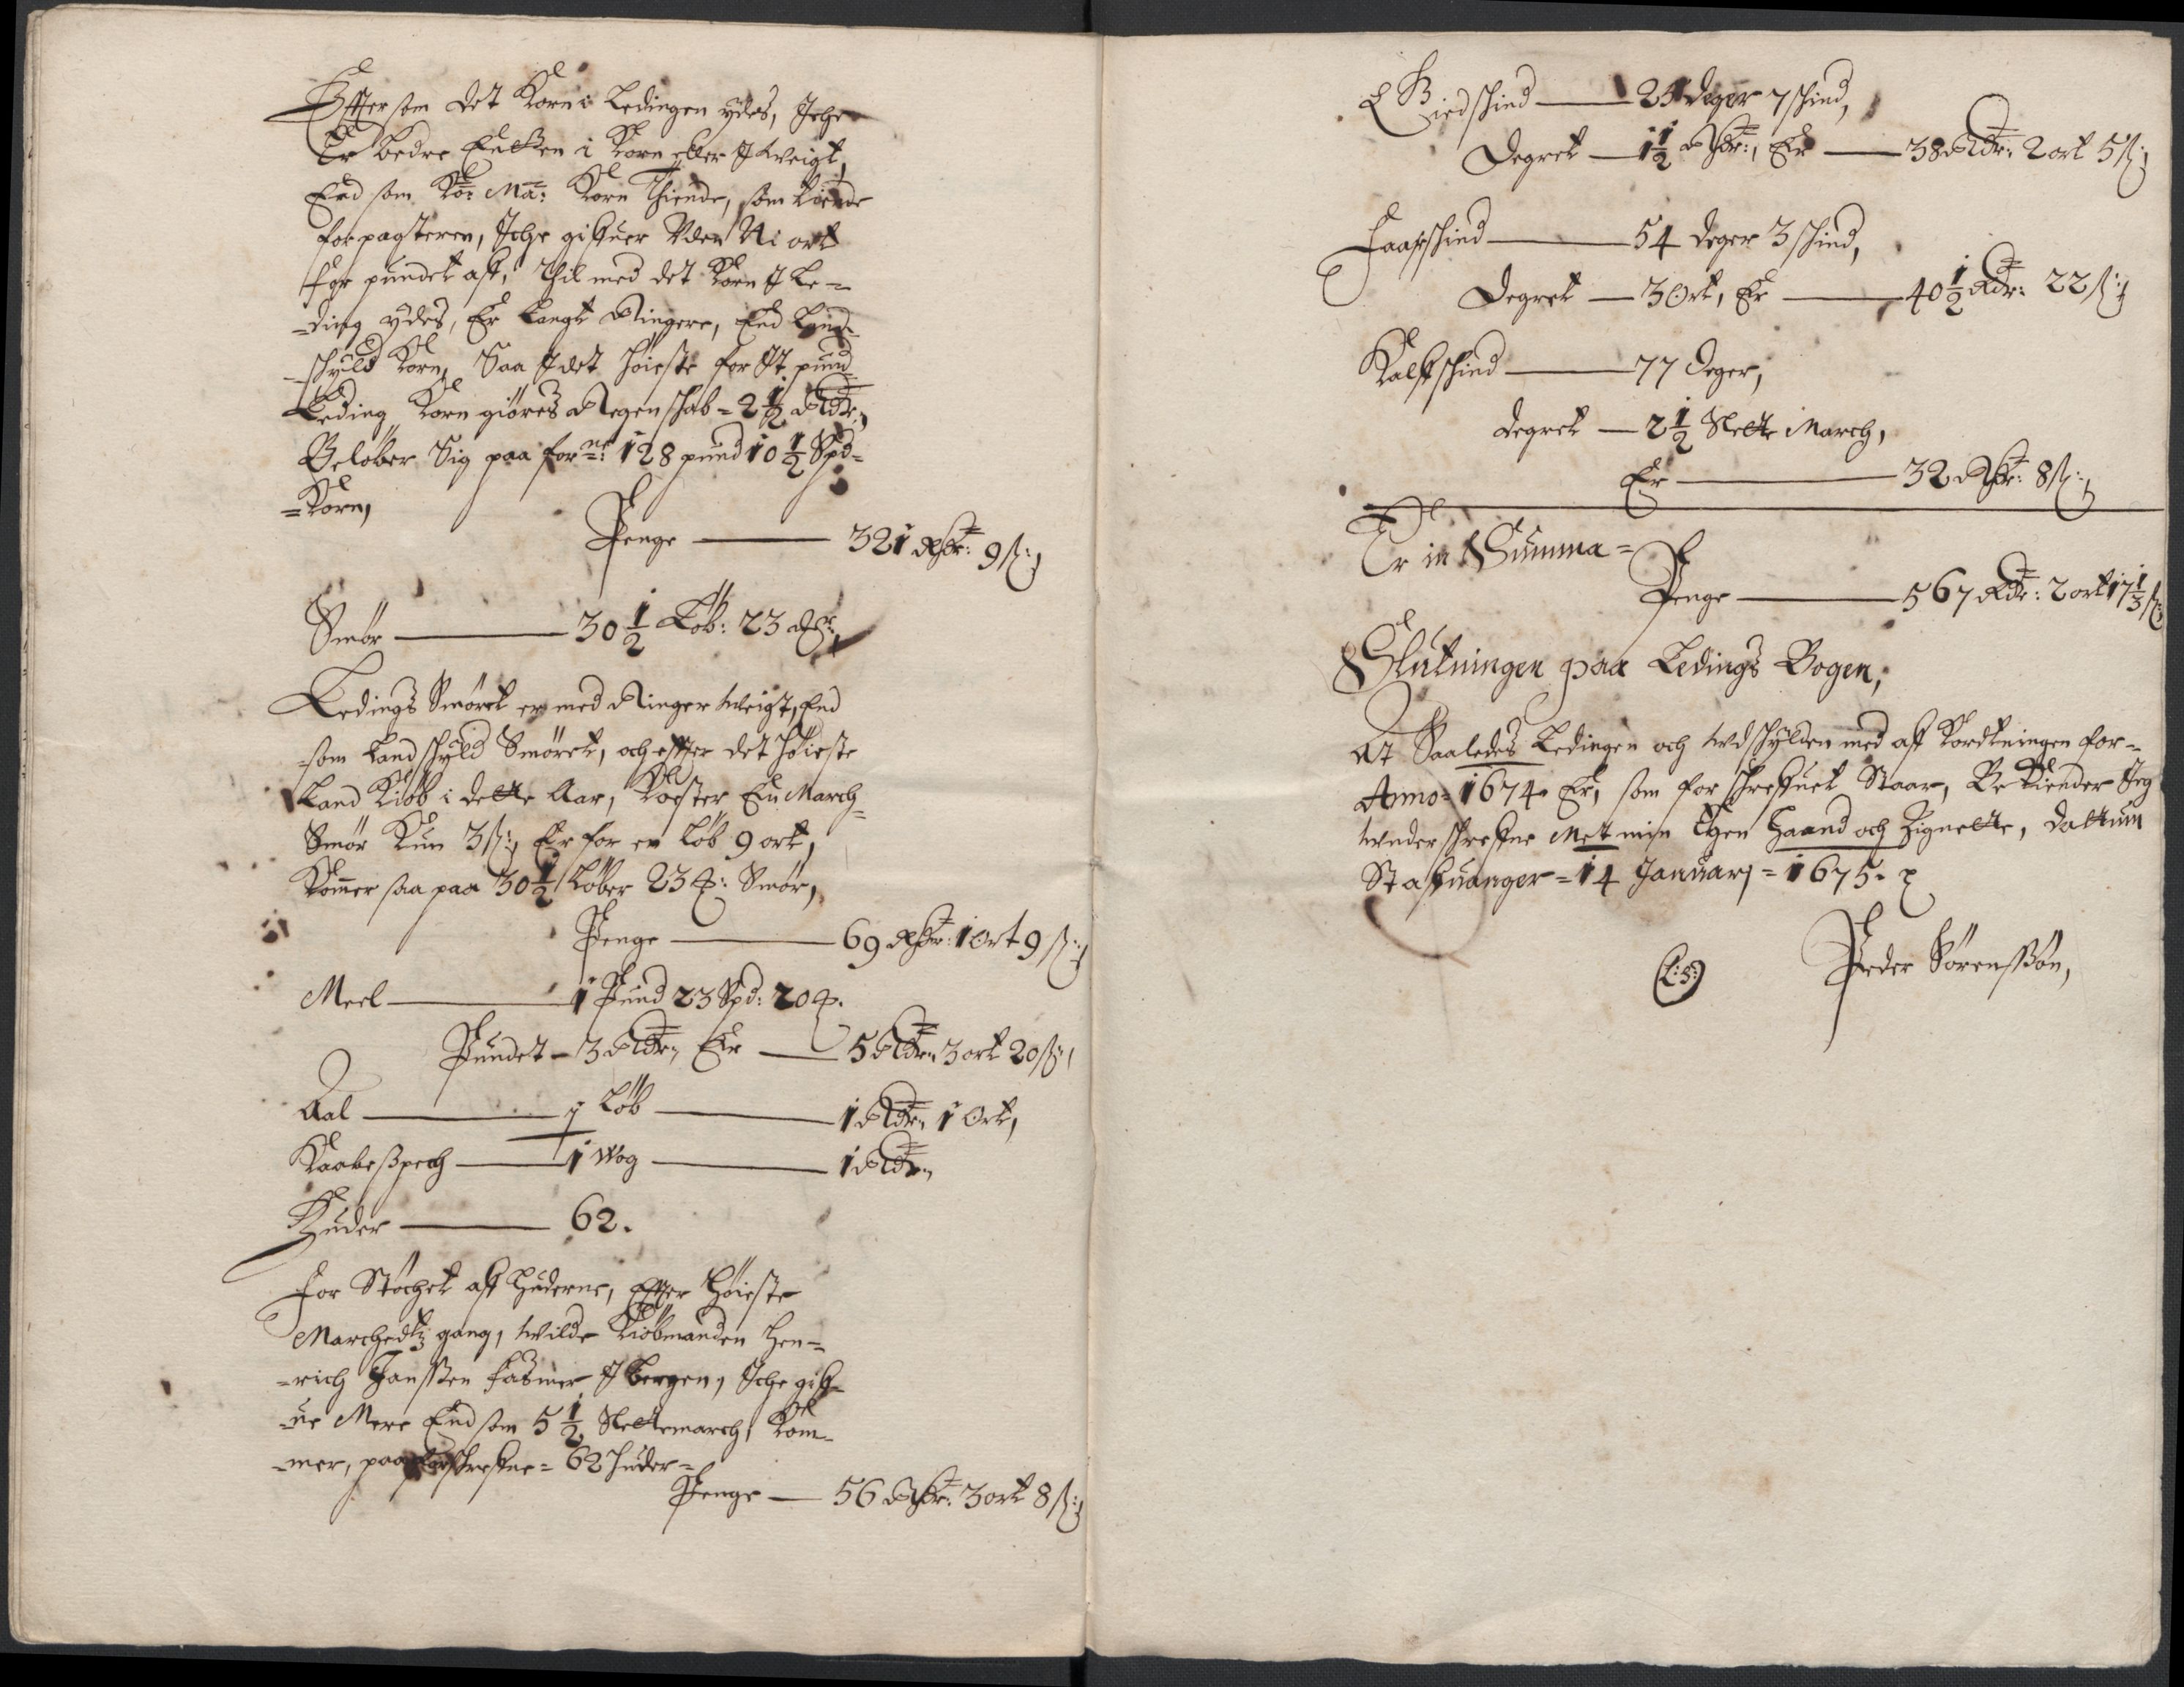 Effter som det Korn i Ledingen ydes, Iche
Er bedre Enten i Korn eller I weigt,
End som Ko: Ma: Korn Thiende, som Tiende
forpagteren, Iche gifuer Uden Ni ort
for pundet aff, Thil med det Korn I Le-
-ding ydes, Er langt Ringere, End Land-
-schyld Korn, Saa I det høieste for It pund
Leding Korn giøres Regenschab = 2½ Rdr:,
Beløber Sig paa forne: 128 pund 10½ Spd=
=Korn,
Penge — 321 Rdr: 9 ß:
Smør — 30½ Løb: 23 mr:,
Ledings Smøret er med Ringer weigt, End
som Landschyld Smøret, och effter det høieste
Land Kiøb i dette Aar, Koster En March=
Smør Kun 3 ß:, Er for en Løb 9 ort,
Kommer saa paa 30½ Løber 23 ꝶ: Smør,
Penge — 69 Rdr: 1 Ort 9 ß:
Meel — 1 Pund 23 Spd: 20 ꝶ.
Pundet – 3 Rdr:, Er — 5 Rdr: 3 ort 20 ß:,
Aal — 1 Løb — 1 Rdr: 1 Ort,
Kaabeßpech — 1 Wog — 1 Rdr:,
Huder — 62.
For Støchet aff huderne, Effter høieste
Marchedtz gang, wilde Kiøbmanden Hen-
-rich Janssen Fasmer I bergen, Iche gif-
-ue Mere End som 5½ Slettemarch, Kom-
-mer, paa forschrefne = 62 huder =
Penge — 56 Rdr: 3 ort 8 ß:
Giedschind — 25 deger 7 schind,
Degret — 1½ Rdr:, Er — 38 Rdr: 2 ort 5 ß:
Faareschind — 54 deger 3 schind,
Degret — 3 Ort, Er — 40½ Rdr: 22 ß:
Kalfschind — 77 deger,
degret — 2½ Slette March,
Er — 32 Rdr: 8 ß:,
Er in Summa =
Penge — 567 Rdr: 2 ort 17⅓ ß:
Slutningen paa Ledings Bogen,
At Saaledes Ledingen och wdschylden med aff Kordtningen for-
Anno = 1674. Er, som for schrefuet Staar, Bekiender Jeg
wnderschrefne Met min Egen Haand och Zignette, Dattum
Stafuanger = 14 Januarj = 1675.
(L:S:) Peder Sørenssøn,